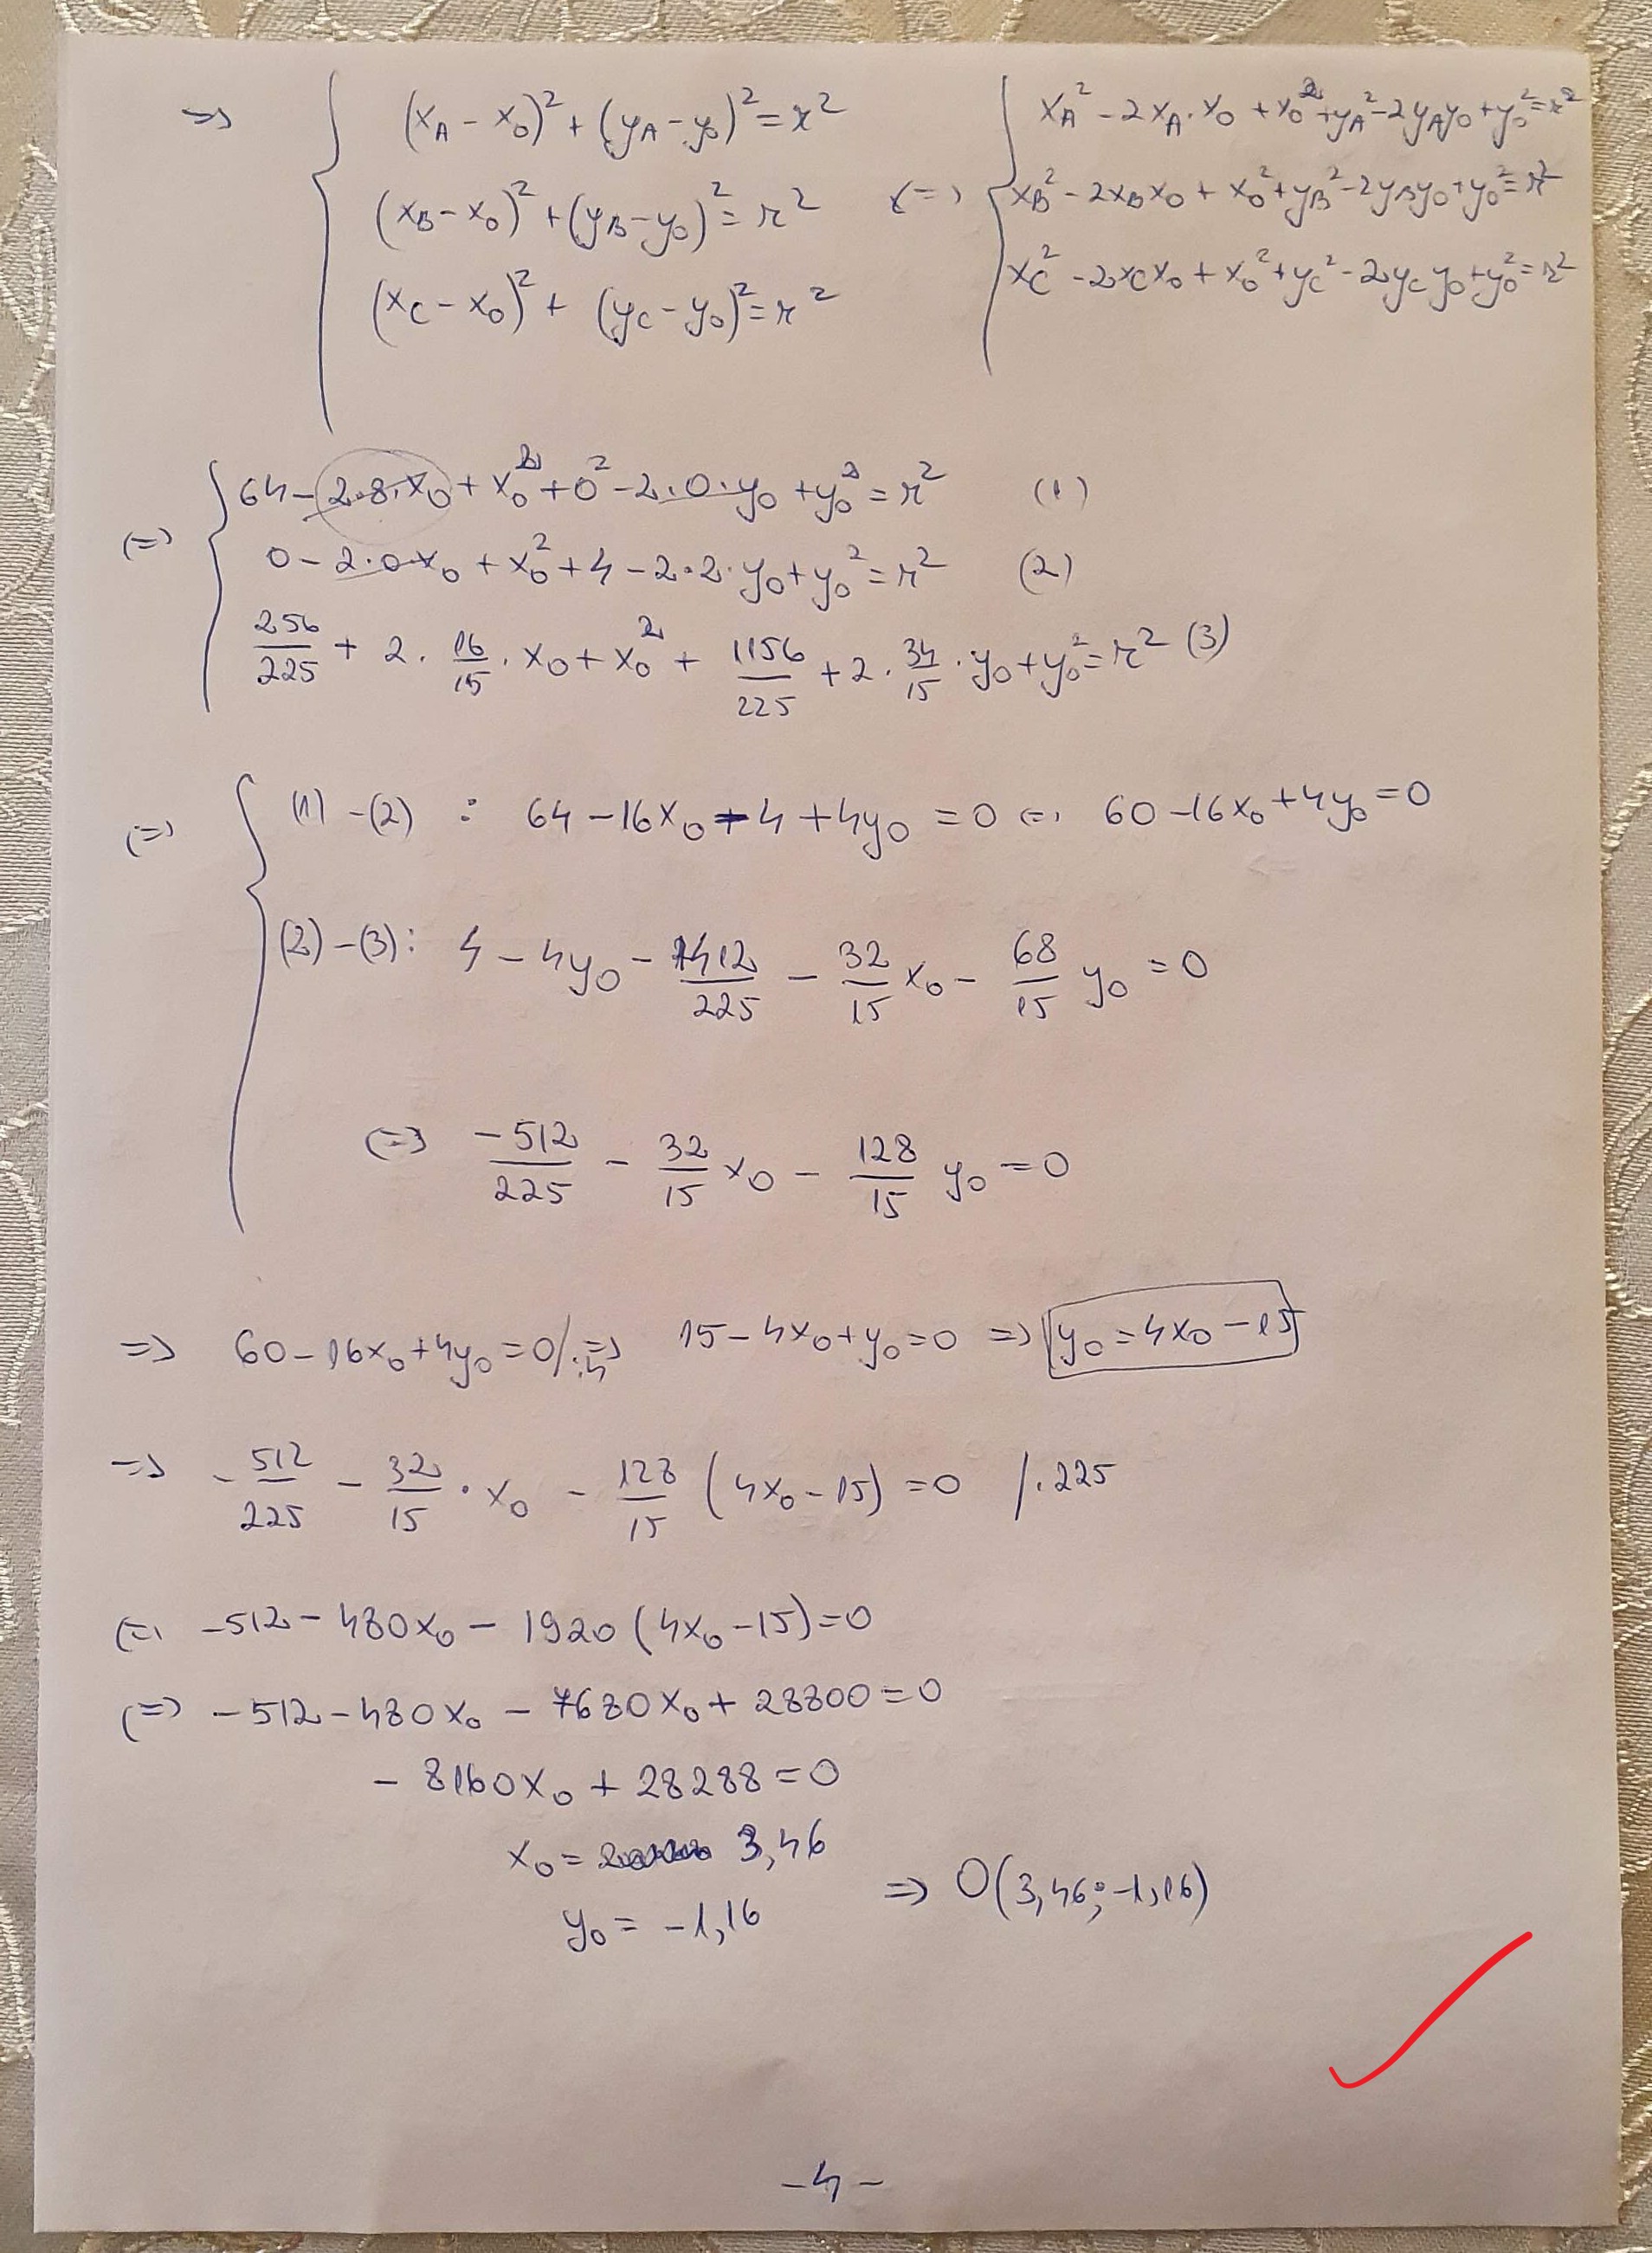 => { (x_A - x_0)² + (y_A - y_0)² = r² <=> { x_A² - 2x_A·x_0 + x_0² + y_A² - 2y_Ay_0 + y_0² = r²
(x_B - x_0)² + (y_B - y_0)² = r² x_B² - 2x_Bx_0 + x_0² + y_B² - 2y_By_0 + y_0² = r²
(x_C - x_0)² + (y_C - y_0)² = r² x_C² - 2x_Cx_0 + x_0² + y_C² - 2y_Cy_0 + y_0² = r²
<=> { 64 - 2·8·x_0 + x_0² + 0² - 2·0·y_0 + y_0² = r² (1)
0 - 2·0·x_0 + x_0² + 4 - 2·2·y_0 + y_0² = r² (2)
256/225 + 2·16/15·x_0 + x_0² + 1156/225 + 2·34/15·y_0 + y_0² = r² (3)
<=> { (1) - (2) : 64 - 16x_0 - 4 + 4y_0 = 0 <=> 60 - 16x_0 + 4y_0 = 0
(2) - (3) : 4 - 4y_0 - 1412/225 - 32/15 x_0 - 68/15 y_0 = 0
<=> -512/225 - 32/15 x_0 - 128/15 y_0 = 0
=> 60 - 16x_0 + 4y_0 = 0 /:4 => 15 - 4x_0 + y_0 = 0 => y_0 = 4x_0 - 15
=> -512/225 - 32/15 · x_0 - 128/15 (4x_0 - 15) = 0 /·225
<=> -512 - 480x_0 - 1920 (4x_0 - 15) = 0
<=> -512 - 480x_0 - 7680x_0 + 28800 = 0
- 8160x_0 + 28288 = 0
x_0 = 3,46
y_0 = -1,16 => O(3,46; -1,16)
-4-